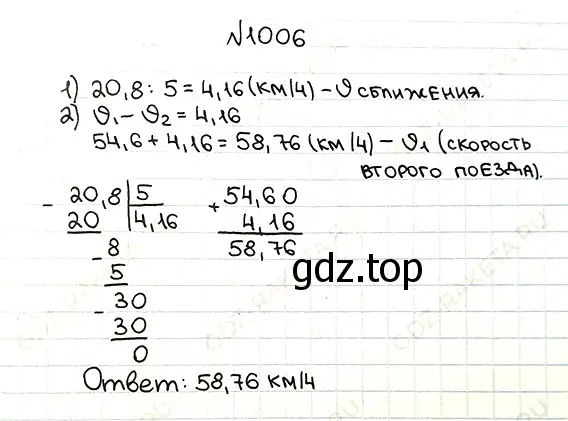 №1006
1) 20,8 : 5 = 4,16 (км/ч) – ϑ сближения.
2) ϑ₁ – ϑ₂ = 4,16
54,6 + 4,16 = 58,76 (км/ч) – ϑ₁ (скорость
второго поезда).
- 20,8 | 5
20 | 4,16
- 8
5
- 30
30
0
+ 54,60
4,16
58,76
gdz.top
Ответ: 58,76 км/ч